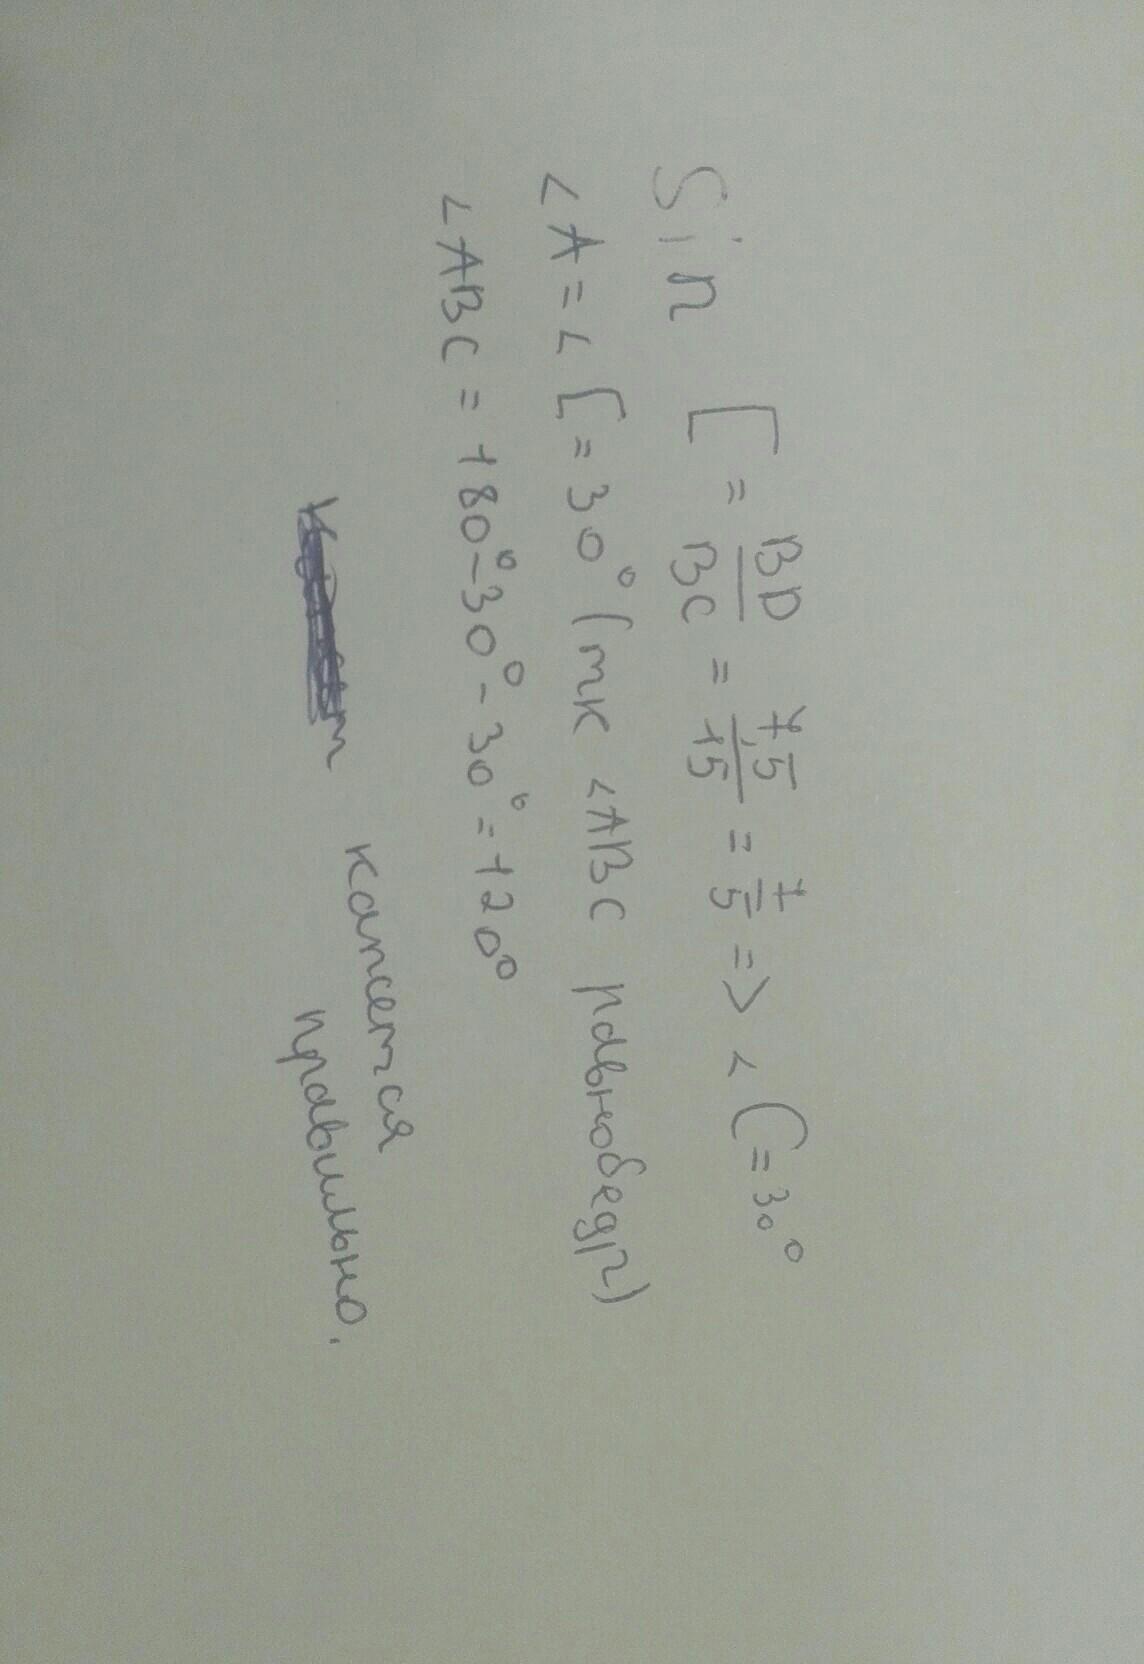 Sin C = BD/BC = 7,5/15 = 1/5 => <C=30°
<A = <C = 30° (тк <ABC равнобедр)
<ABC = 180°-30°-30°=120°
кажется
правильно.